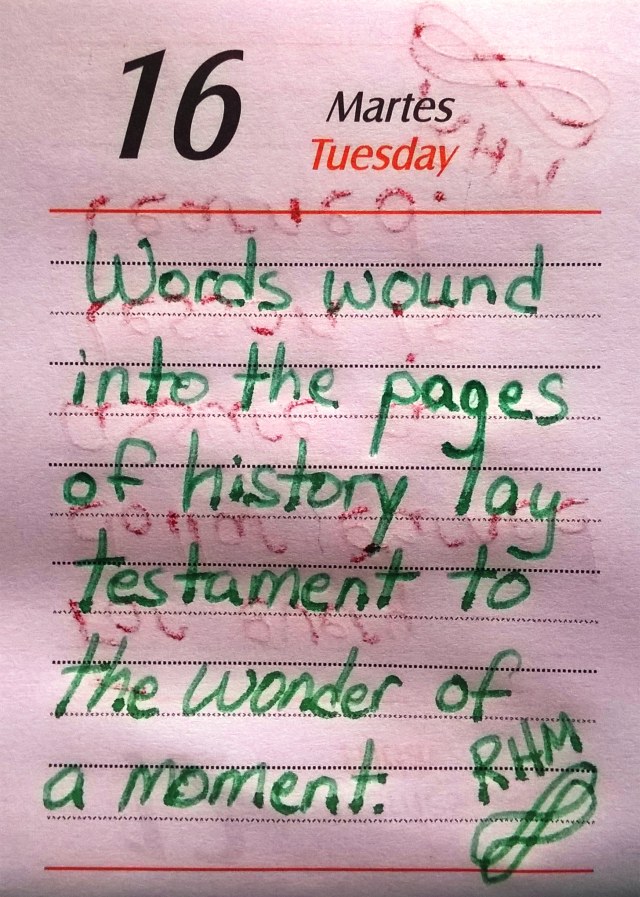 16
Martes
Tuesday
Words wound
into the pages
of history lay
testament to
the wonder of
a moment.
RHM